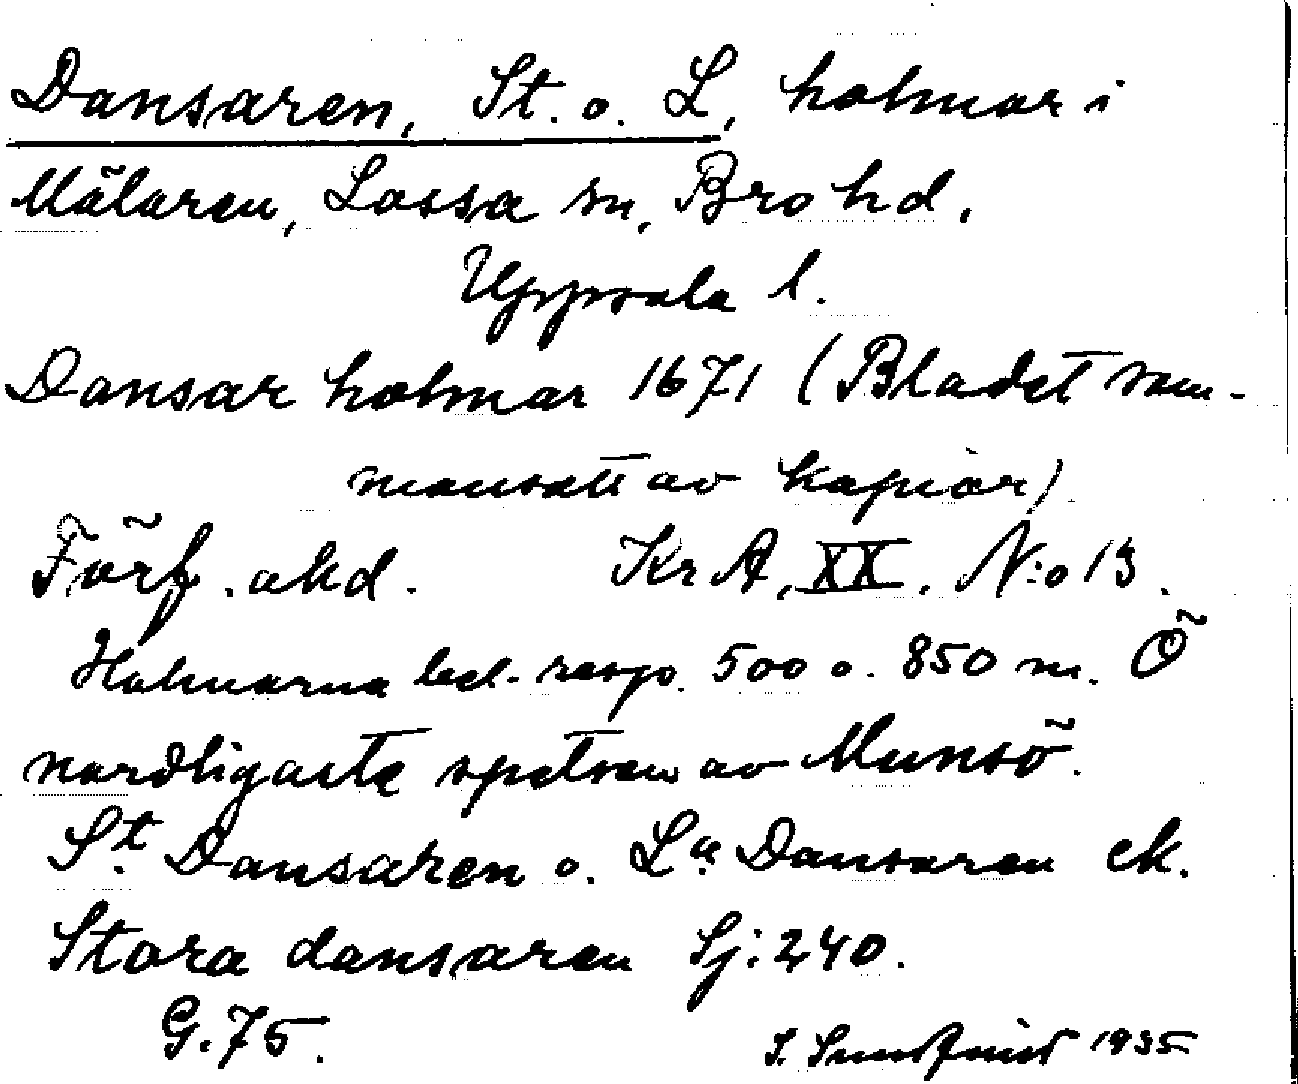 Dansaren, St. o. L, holmar i
Mälaren, Lossa sn, Bro hd.
Uppsala l.
Dansar holmar 1671 (Bladet sam-
mansatt av kopior)
Förf. okd. KrA, XX, N:o 13.
Holmarna bel. resp. 500 o. 850 m. Ö
nordligaste spetsen av Munsö.
St. Dansaren o. La. Dansaren ek.
Stora dansaren Sj: 240.
G. 75.
S. Sundqvist 1935